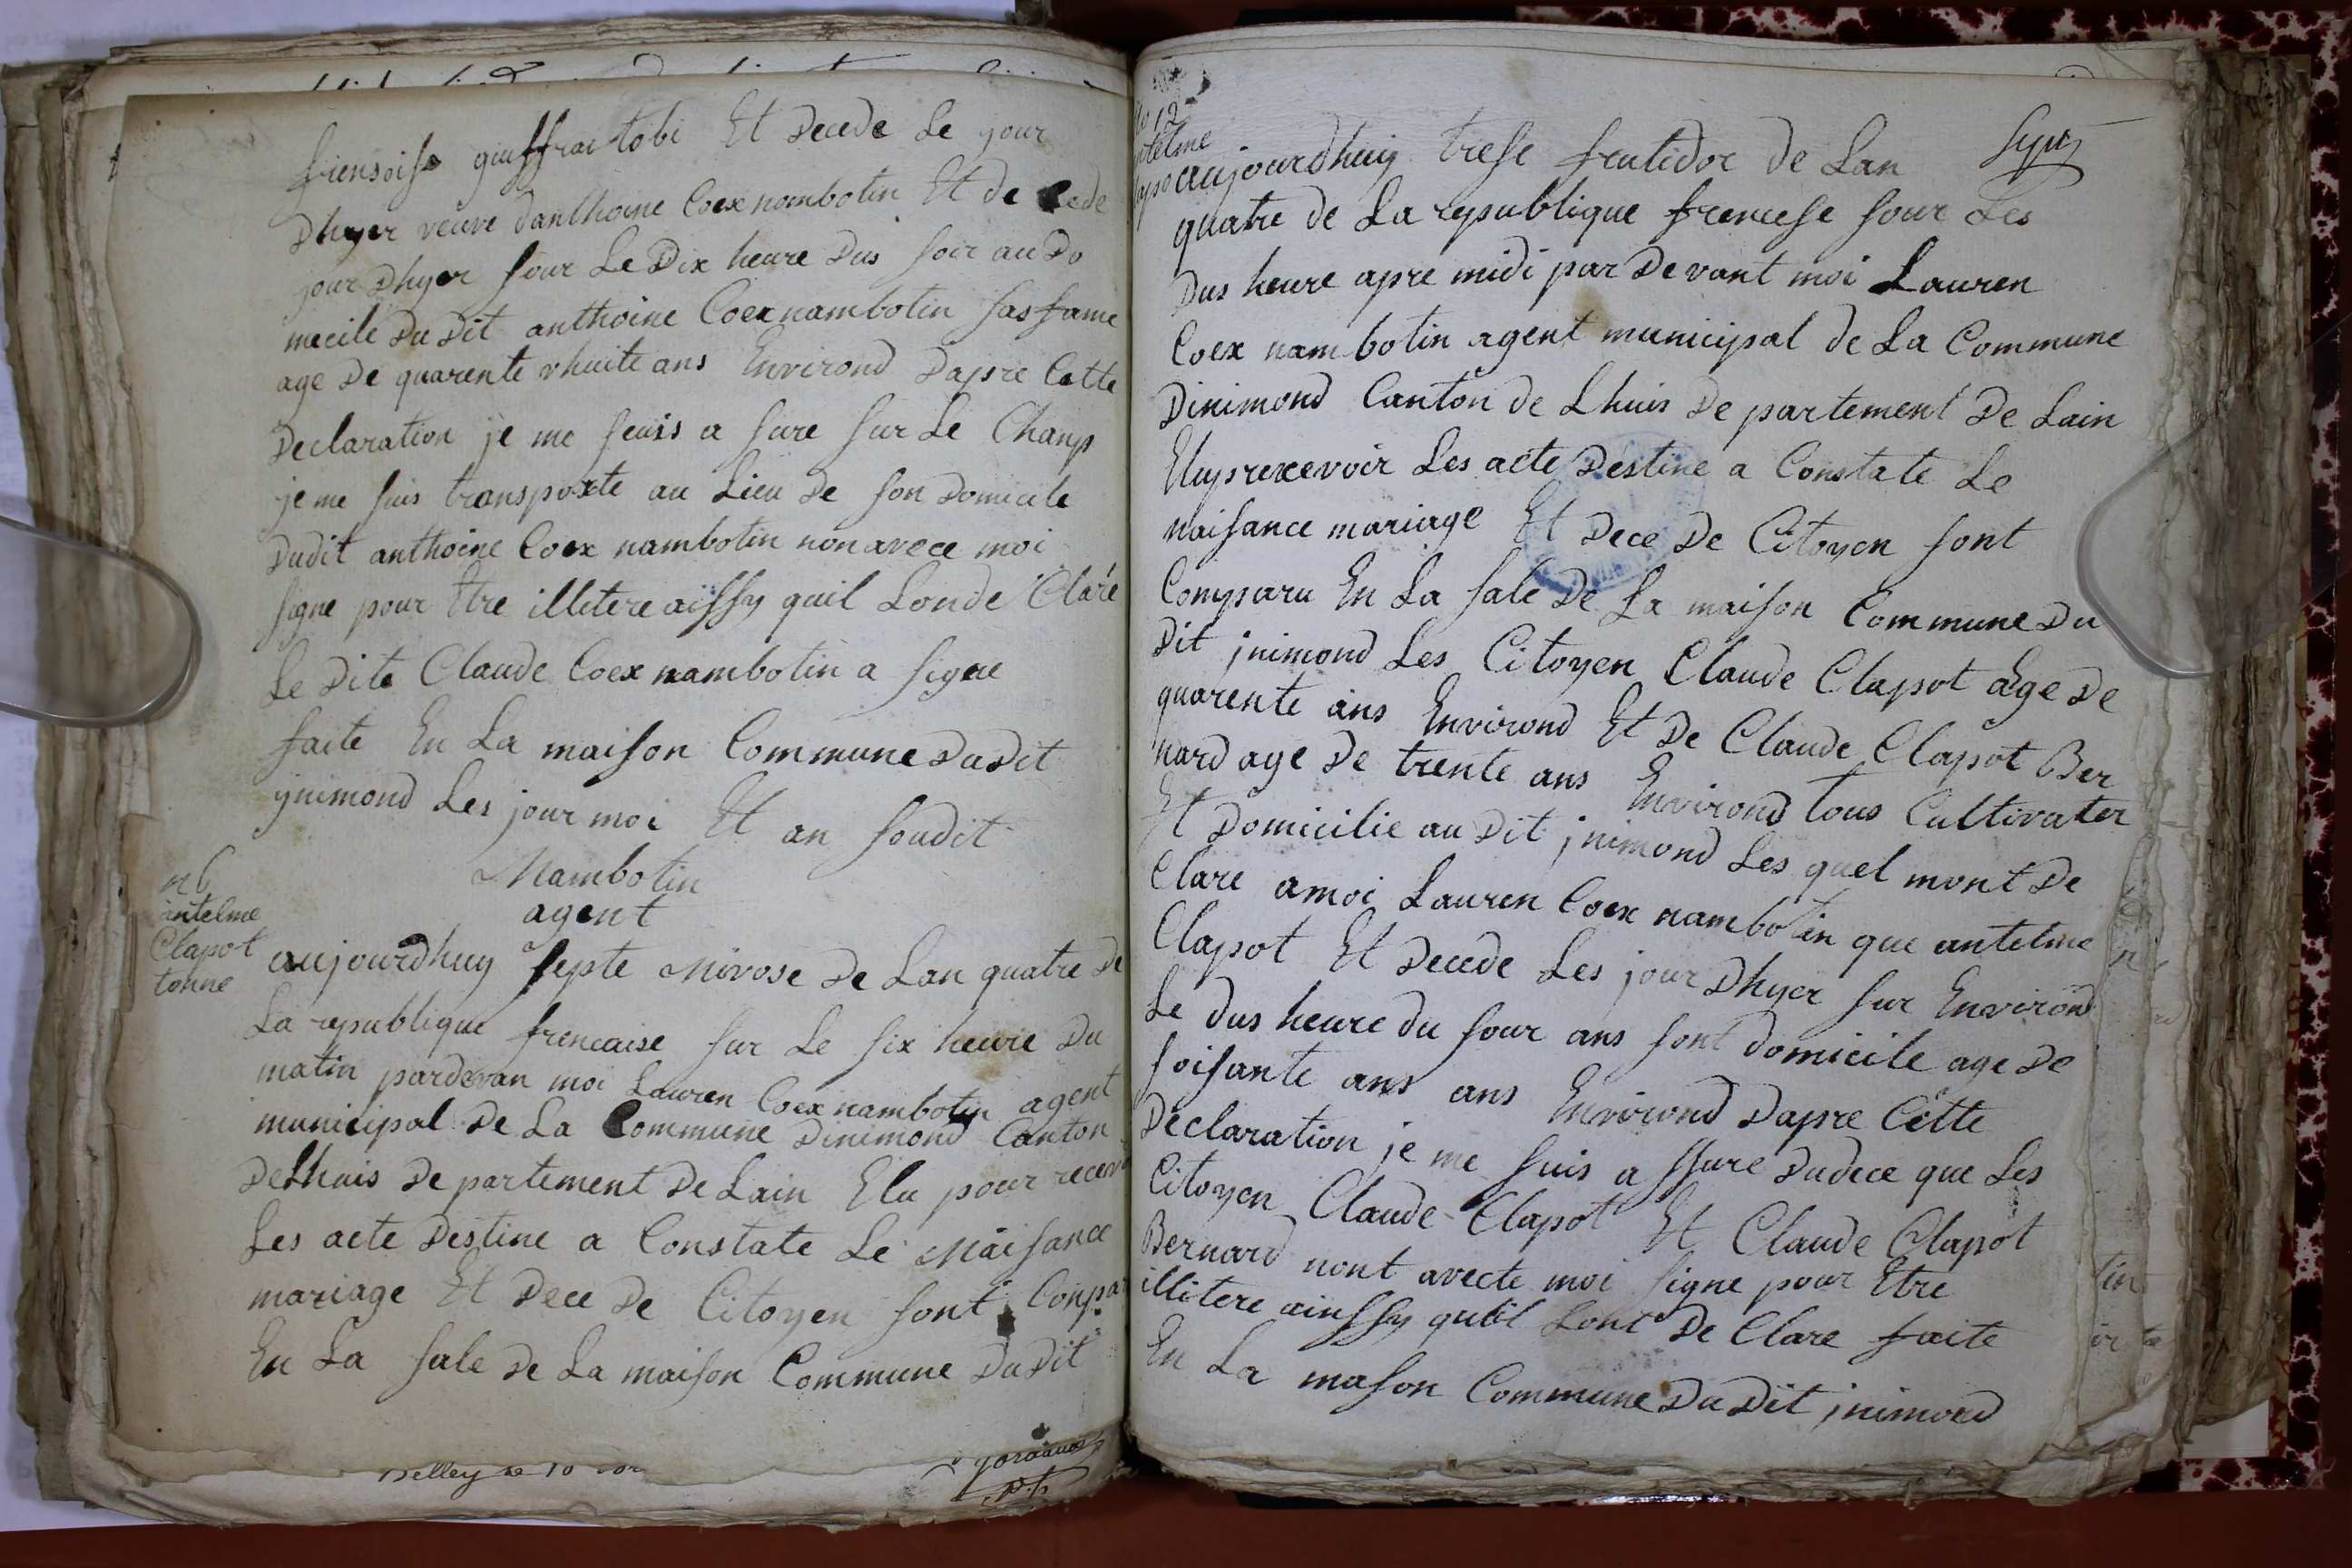 giuffrai tobi Et Decede Le jour
Dhyer veuve danthoine Coex nambotin Et de cede
jour Dhyer sour Le Dix heure Dus soir au Do
mecile Du Dit anthoine Coex nambotin sas fame
age De quarente vhuite ans Environd Dapre Cette
Declaration je me seuis a sure sur Le Champ
je me suis transporte au Lieu De son Domicile
Dudit anthoine Coex nambotin non avece moi
signe pour Etre illitere aissy quil Londe Claré
Le Dite Claude Coex nambotin a signe
faite En La maison Commune DuDit
ynimond Les jour moi Et an soudit
Nambotin
agent
n 6
antelme
Clapot
tonne
aujourdhuy septe Nivose De Lan quatre De
La republique frencaise sur Le six heure Du
matin pardevan moi Lauren Coex nambotin agent
municipal De La Commune Dinimond Canton
DeLhuis De partement De Lain Elu pour recev
Les acte Destine a Constate Le Naisance
mariage Et Dece De Citoyen sont Conpa
En La sale De La maison Commune DuDit
Belley le 10
No 12
aujourdhuy trese frutidor De Lan
quatre de La republique frencese sour Les
Dus heure apre midi par De vant moi Lauren
Coex nambotin agent municipal de La Commune
Dinimond Canton de Lhuis De partement De Lain
Eluprexevoir Les acte Destine a Constate Le
naisance mariage Et Dece De Citoyen sont
Comparu En La sale De La maison Commune Du
Dit jnimond Les Citoyen Claude Clapot age De
quarente ans Environd Et De Claude Clapot Ber
nard age De trente ans Environd tous Cultivater
Et Domicilie au Dit jnimond Les quel mont De
Clare amoi Lauren Coex nambotin que antelme
Clapot Et Decede Les jour Dhyer sur Environd
Le dus heure du sour ans sont domicile age De
soisante ans ans Environd Dapre Cette
Declaration je me suis assure Dudece que Les
Citoyen Claude Clapot Et Claude Clapot
Bernard nont avecte moi signe pour Etre
illitere ainssy quil Lont De Clare faite
En La mason Commune DuDit jnimond